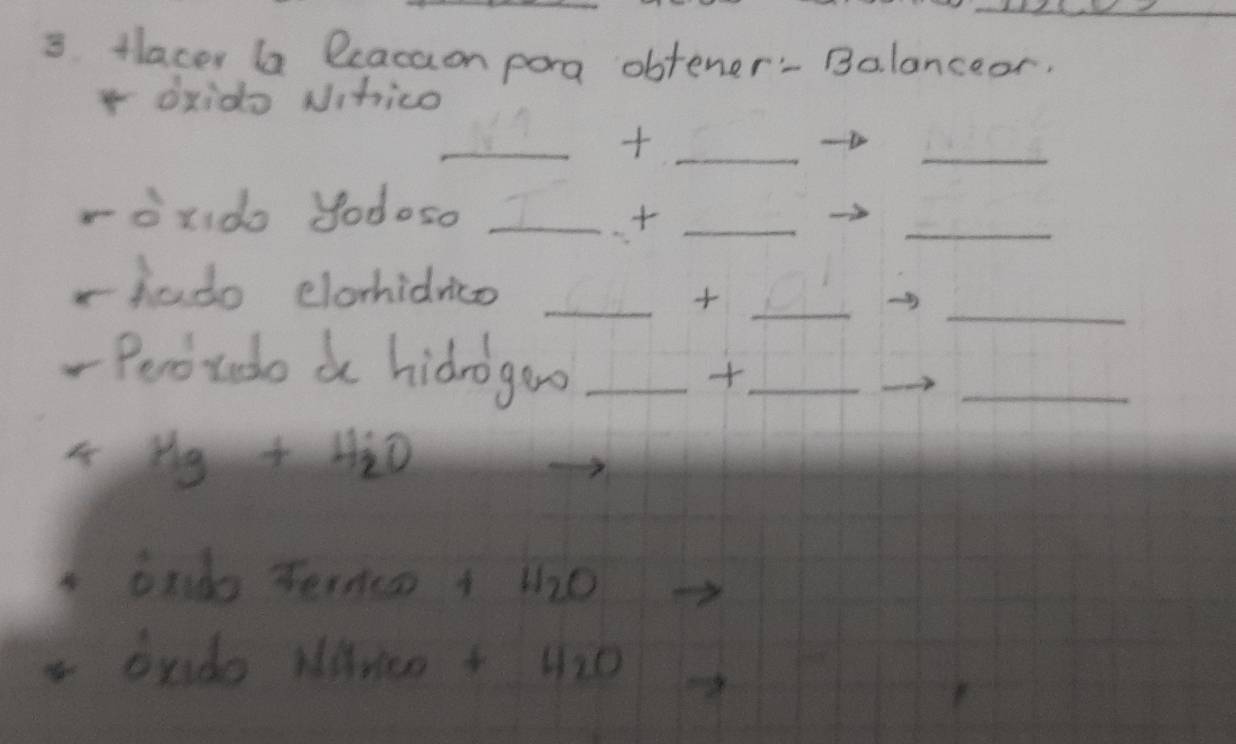 3. Hacer la Reaccion para obtener:- Balancear.
* óxido Nitrico
____ + ____ → ____
- óxido Yodoso ____ + ____ → ____
- clorhidrico ____ + ____ → ____
- Peróxido de hidrógeno ____ + ____ → ____
* Mg + H2O →
* óxido Ferrico + H2O →
* óxido Nitrico + H2O →